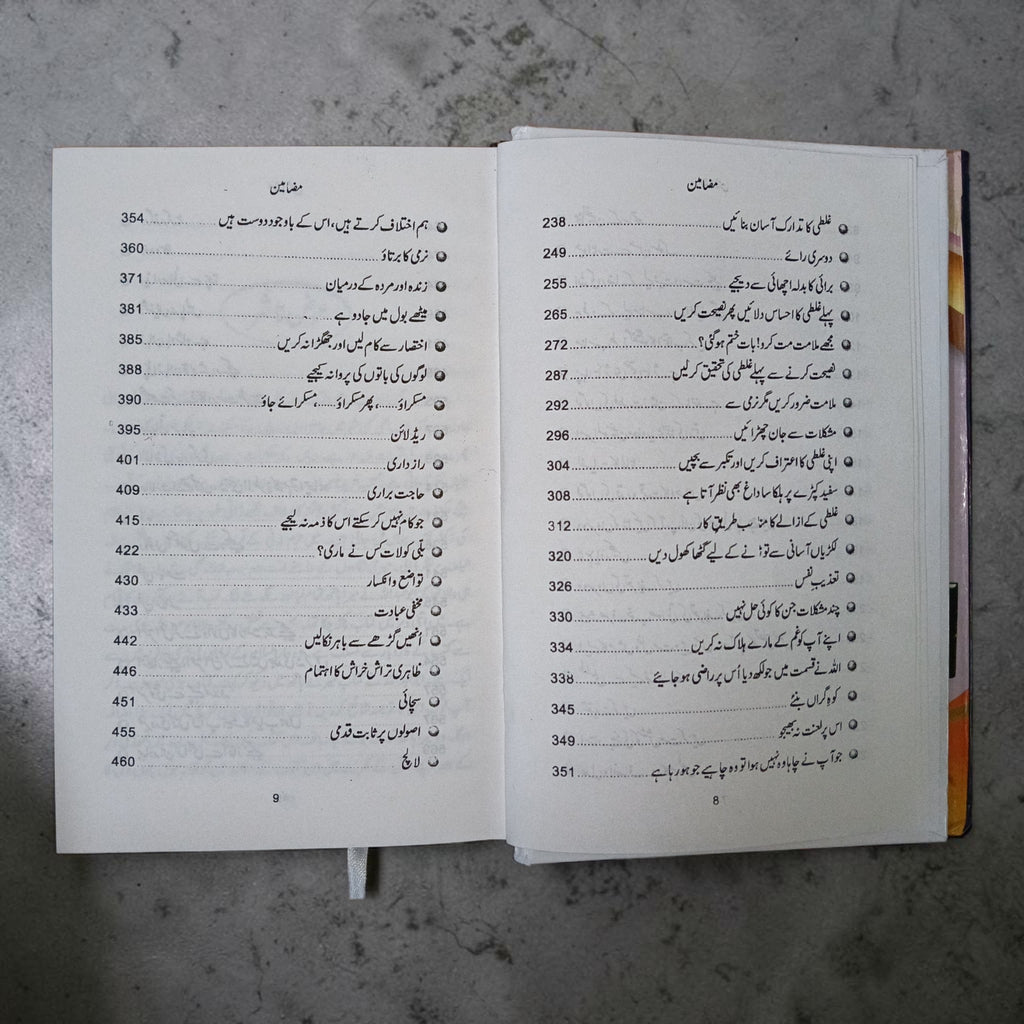 مضامین
غلطی کا تدارک آسان بنائیں ........ 238
دوسری رائے ........ 249
برائی کا بدلہ اچھائی سے دیجیے ........ 255
پہلے غلطی کا احساس دلائیں پھر نصیحت کریں ........ 265
مجھے ملامت مت کرو! بات ختم ہوگئی؟ ........ 272
نصیحت کرنے سے پہلے غلطی کی تحقیق کرلیں ........ 287
ملامت ضرور کریں مگر نرمی سے ........ 292
مشکلات سے جان چھڑائیں ........ 296
اپنی غلطی کا اعتراف کریں اور تکبر سے بچیں ........ 304
سفید کپڑے پر ہلکا سا داغ بھی نظر آتا ہے ........ 308
غلطی کے ازالے کا مناسب طریقِ کار ........ 312
لکڑیاں آسانی سے توڑنے کے لیے گٹھا کھول دیں ........ 320
تعذیبِ نفس ........ 326
چند مشکلات جن کا کوئی حل نہیں ........ 330
اپنے آپ کو غم کے مارے ہلاک نہ کریں ........ 334
اللہ نے قسمت میں جو لکھ دیا اُس پر راضی ہو جایئے ........ 338
کوہِ گراں بنئے ........ 345
اس پر لعنت نہ بھیجو ........ 349
جو آپ نے چاہا وہ نہیں ہوا تو وہ چاہیے جو ہو رہا ہے ........ 351
8
مضامین
ہم اختلاف کرتے ہیں، اس کے باوجود دوست ہیں ........ 354
نرمی کا برتاؤ ........ 360
زندہ اور مردہ کے درمیان ........ 371
میٹھے بول میں جادو ہے ........ 381
اختصار سے کام لیں اور جھگڑا نہ کریں ........ 385
لوگوں کی باتوں کی پروا نہ کیجیے ........ 388
مسکراؤ......، پھر مسکراؤ......، مسکرائے جاؤ ........ 390
ریڈ لائن ........ 395
راز داری ........ 401
حاجت براری ........ 409
جو کام نہیں کر سکتے اس کا ذمہ نہ لیجیے ........ 415
بلّی کو لات کس نے ماری؟ ........ 422
تواضع و انکسار ........ 430
مخفی عبادت ........ 433
اُنھیں گڑھے سے باہر نکالیں ........ 442
ظاہری تراش خراش کا اہتمام ........ 446
سچائی ........ 451
اصولوں پر ثابت قدمی ........ 455
لالچ ........ 460
9